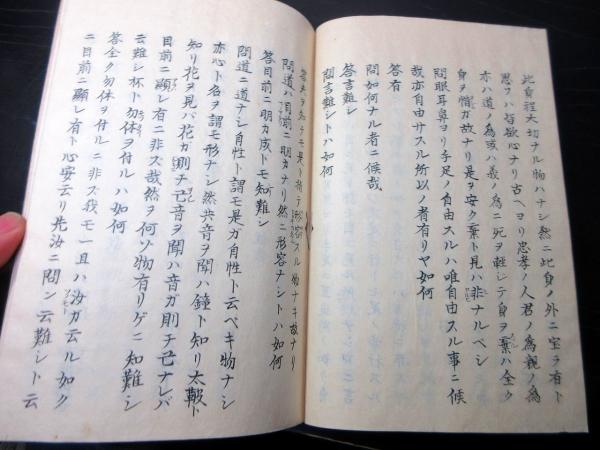 此身程大切ナル物ハナシ然ニ此身ノ外ニ宝ヲ有ト
思フハ皆欲心ナリ古ヘヨリ忠孝ノ人君ノ為親ノ為
亦ハ道ノ為或ハ義ノ為ニ死ヲ軽シテ身ヲ棄ハ全ク
身ヲ憎ガ故ナリ是ヲ安ク棄ト見ハ非ナルベシ
問眼耳鼻ヨリ手足ノ自由スルハ唯自由スル事ニ候
哉亦自由サスル所以ノ者有リヤ如何
答有
問如何ナル者ニ候哉
答言難シ
問言難シトハ如何
答夫ヲ知テモ是ト指テ形容スル物ナキ故ナリ
問道ハ目前ニ明カナリ然ニ形容ナシトハ如何
答目前ニ明カ成ドモ知難シ
問道ニ道ナシ自性ト謂モ是ガ自性ト云ベキ物ナシ
亦心ト名ヲ謂モ形ナシ然共音ヲ聞ハ鐘ト知リ太鼓ト
知リ花ヲ見バ花ガ則チ己音ヲ聞ハ音ガ則チ己ナレバ
目前ニ顕レ有ニ非ズ哉然ヲ何ゾ物有リゲニ知難シ
云難シ杯ト勿体ヲ付ルハ如何
答全ク勿体ヲ付ルニ非ズ我モ一旦ハ汝ガ云ル如ク
ニ目前ニ顕レ有ト心安云リ先汝ニ問ン云難シト云